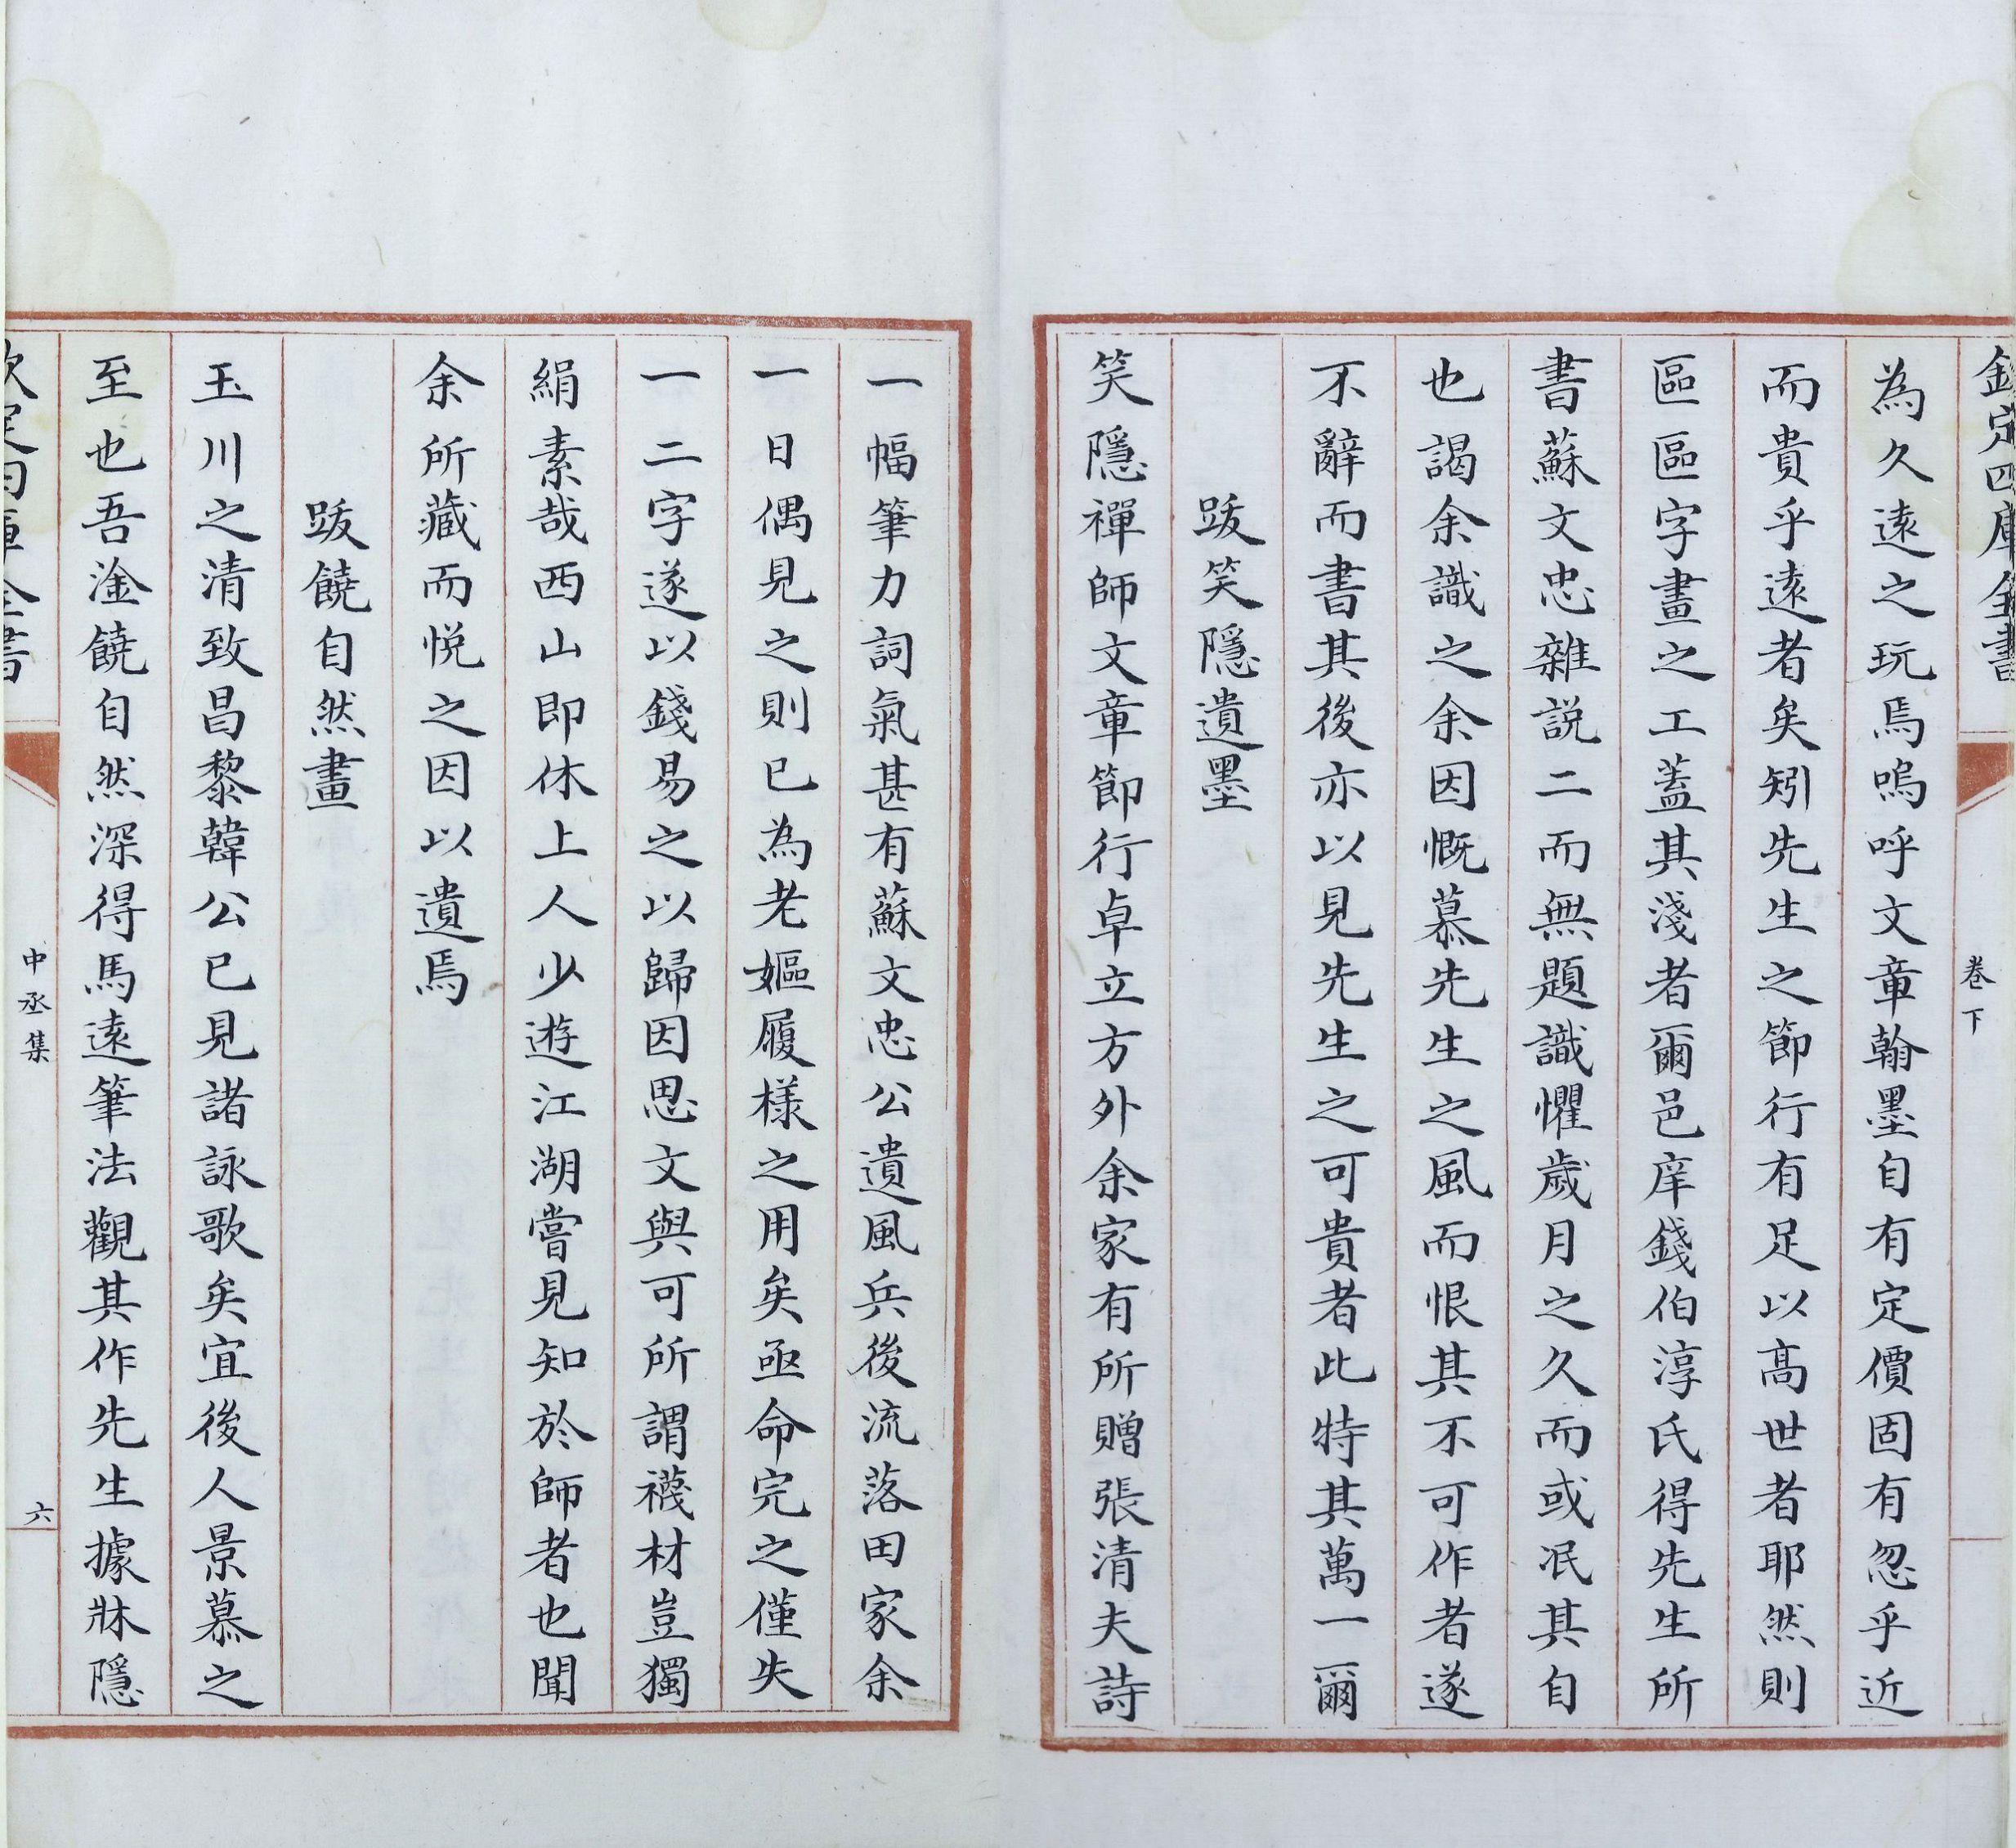 欽定四庫全書 卷下
為久遠之玩焉嗚呼文章翰墨自有定價固有忽乎近
而貴乎遠者矣矧先生之節行有足以髙世者耶然則
區區字畫之工蓋其淺者爾邑庠錢伯淳氏得先生所
書蘇文忠雜説二而無題識懼歲月之久而或泯其自
也謁余識之余因慨慕先生之風而恨其不可作者遂
不辭而書其後亦以見先生之可貴者此特其萬一爾
跋笑隱遺墨
笑隱禪師文章節行卓立方外余家有所贈張清夫詩
一幅筆力詞氣甚有蘇文忠公遺風兵後流落田家余
一日偶見之則已為老嫗履樣之用矣亟命完之僅失
一二字遂以錢易之以歸因思文與可所謂襪材豈獨
絹素哉西山即休上人少遊江湖嘗見知於師者也聞
余所藏而悦之因以遺焉
跋饒自然畫
玉川之清致昌黎韓公已見諸詠歌矣宜後人景慕之
至也吾淦饒自然深得馬遠筆法觀其作先生據牀隱
欽定四庫全書 中丞集 六